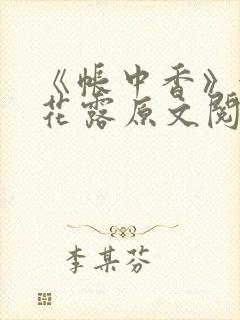 《帐中香》
花露原文阅
李某芬